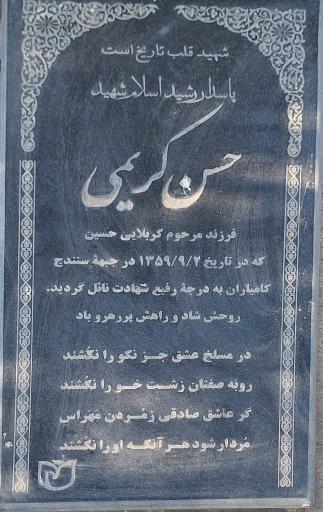 شهید قلب تاریخ است
پاسدار رشید اسلام شهید
حسن کریمی
فرزند مرحوم کربلایی حسین
که در تاریخ ۱۳۵۹/۹/۲ در جبهة سنندج
کامیاران به درجة رفیع شهادت نائل گردید.
روحش شاد و راهش پررهرو باد
در مسلخ عشق جز نکو را نکُشند
روبه صفتان زشت خو را نکُشند
گر عاشق صادقی زمُردن مَهراس
مُردار شود هر آنکه او را نکُشند